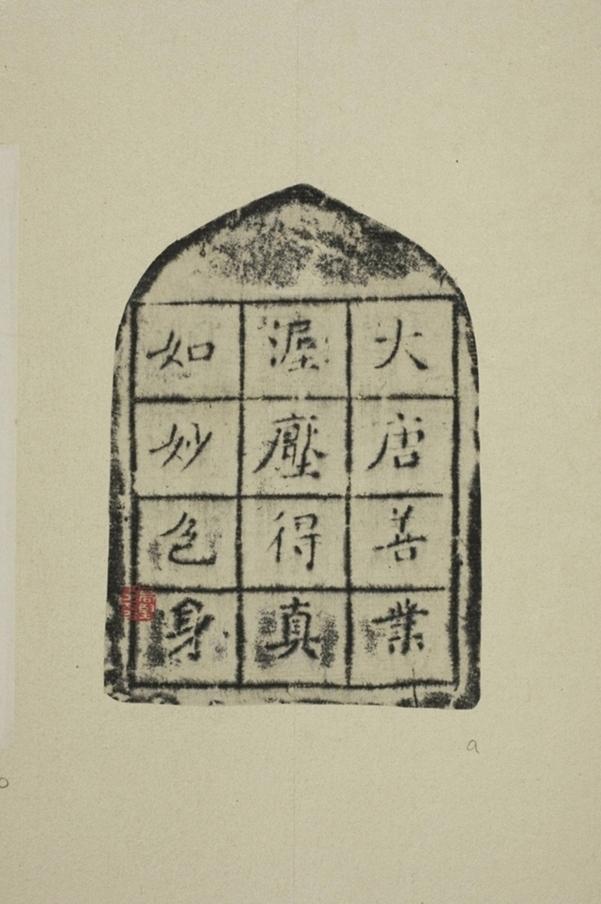 大唐善業
埿壓得真
如妙色身
a